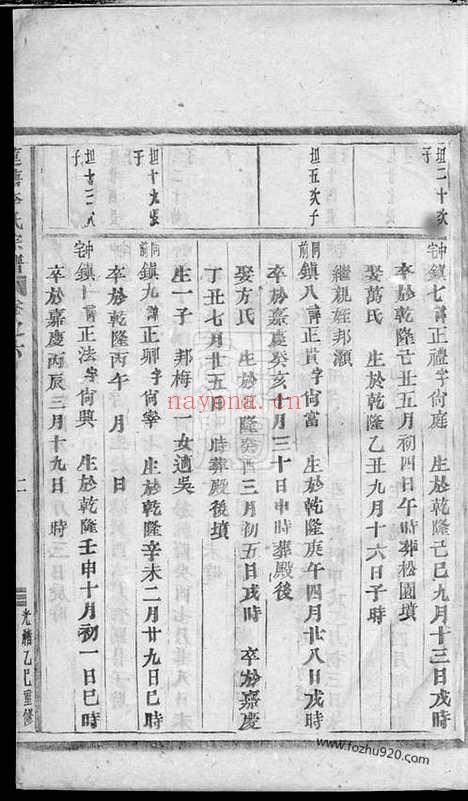 坦二十次子
中宅鎮七諱正禮字尙庭 生於乾隆己巳九月十三日戌時
卒於乾隆己丑五月初四日午時葬松園墳
娶萬氏 生於乾隆乙丑九月十六日子時
繼親姪邦灝
坦五次子
同前鎮八諱正貴字尙富 生於乾隆庚午四月廿八日戌時
卒於嘉慶癸亥十月三十日申時葬殿後
娶方氏 生於乾隆癸酉三月初五日戌時 卒於嘉慶
丁丑七月廿五日 時葬殿後墳
生一子 邦梅 一女適吳
坦十九長子
同前鎮九諱正卿字尙寧 生於乾隆辛未二月廿九日巳時
卒於乾隆丙午 月 日
坦十三次子
中宅鎮十諱正法字尙興 生於乾隆壬申十月初一日巳時
卒於嘉慶丙辰三月十九日 時
李氏宗譜 卷之六
二
光緒乙巳重修
nayona.cn
www.fozhu920.com